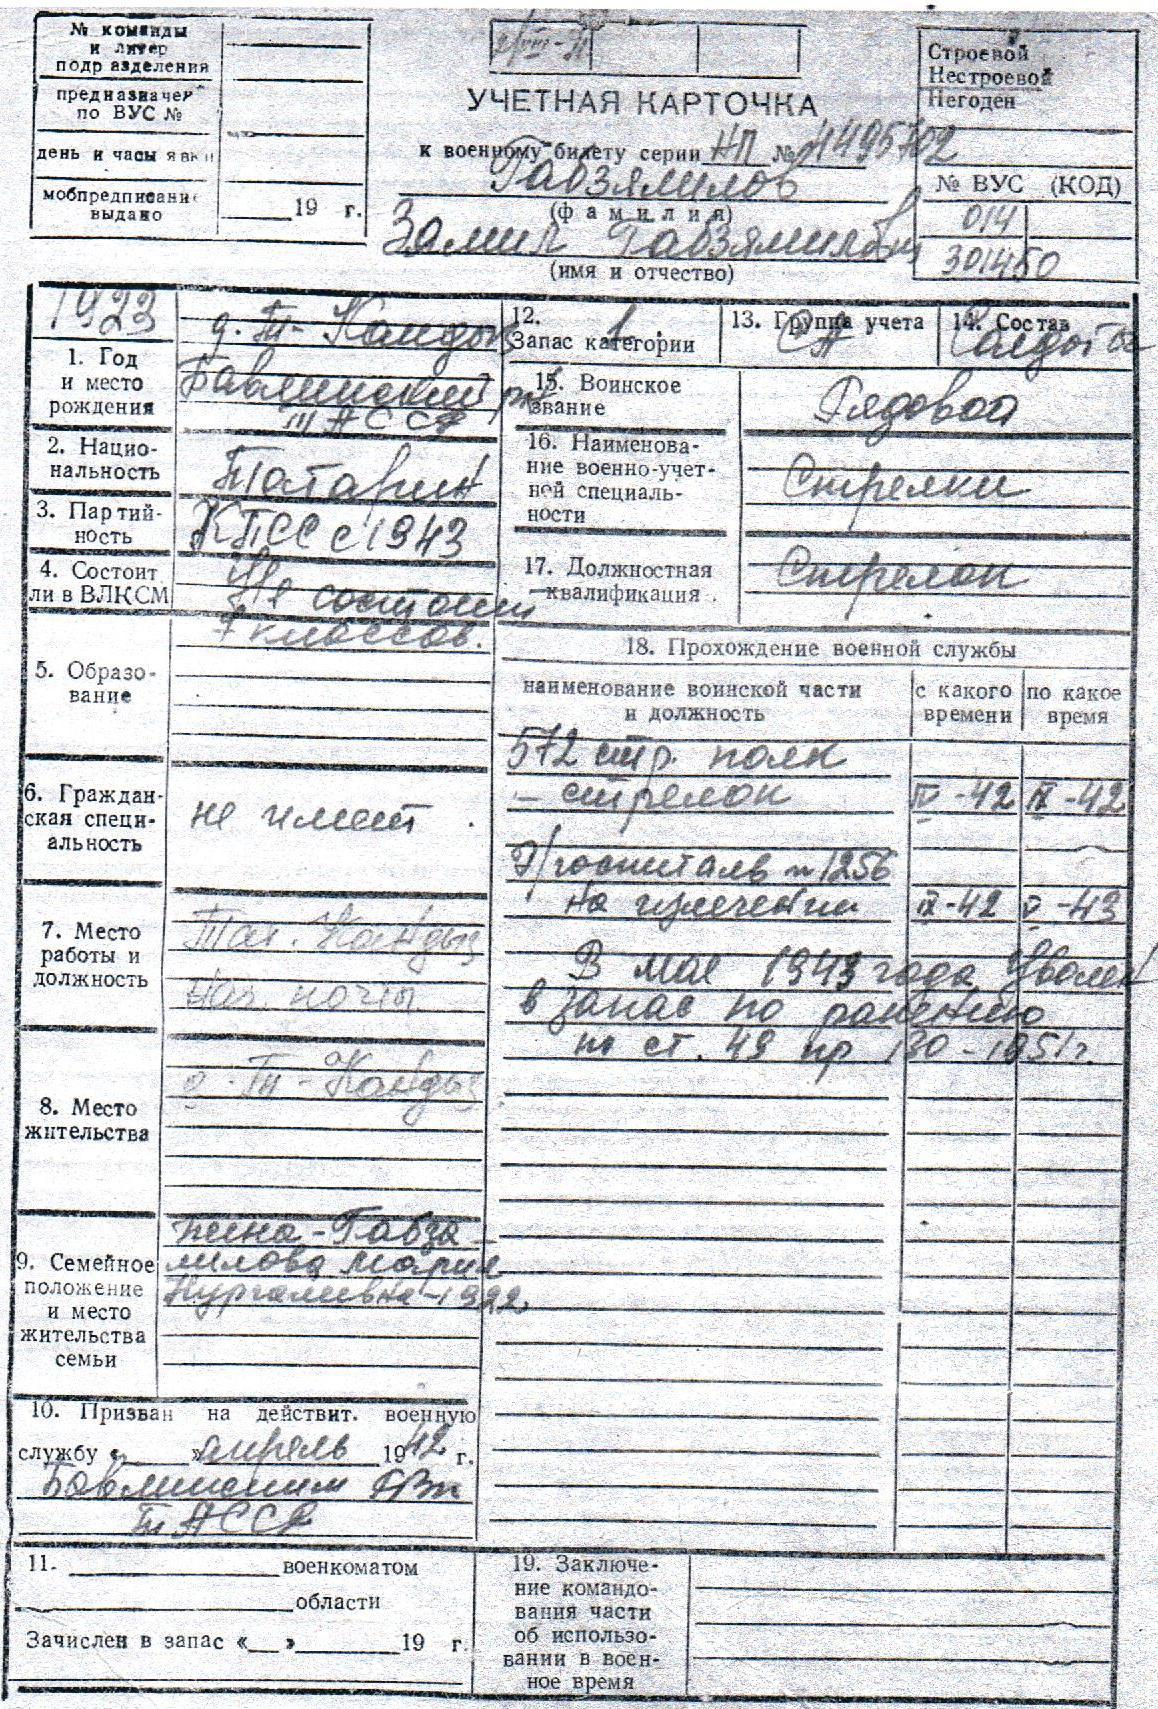 № команды
и литер
подразделения
предназначен
по ВУС №
день и часы явки
мобпредписание
выдано
19 г.
УЧЕТНАЯ КАРТОЧКА
к военному билету серии НП № 4495702
Габзямилов
(фамилия)
Замил Габзямилович
(имя и отчество)
Строевой
Нестроевой
Негоден
№ ВУС (КОД)
014
301450
1923
1. Год
и место
рождения
д. Т-Кандыз
Бавлинский р-н
ТАССР
2. Нацио-
нальность
Татарин
3. Партий-
ность
КПСС с 1943
4. Состоит
ли в ВЛКСМ
Не состоит
5. Образо-
вание
7 классов.
6. Граждан-
ская специ-
альность
не имеет.
7. Место
работы и
должность
Тат. Кандыз
Нач. почты
8. Место
жительства
д. Т-Кандыз
9. Семейное
положение
и место
жительства
семьи
жена-Габзя-
милова Мария
Нургалиевна-1922
10. Призван на действит. военную
службу « » апрель 1942 г.
Бавлинским РВк
ТАССР
11. военкоматом
области
Зачислен в запас « » 19 г.
12.
Запас категории
1.
13. Группа учета
СА
14. Состав
Солдатов
15. Воинское
звание
Рядовой
16. Наименова-
ние военно-учет-
ной специаль-
ности
Стрелки
17. Должностная
квалификация.
Стрелок
18. Прохождение военной службы
наименование воинской части
и должность
с какого
времени
по какое
время
572 стр. полк
- стрелок IV-42 IX-42
Э/госпиталь № 1256
на излечении IX-42 V-43
В мае 1943 года уволен
в запас по ранению
по ст. 49 пр 130-1951г.
19. Заключе-
ние командо-
вания части
об использо-
вании в воен-
ное время